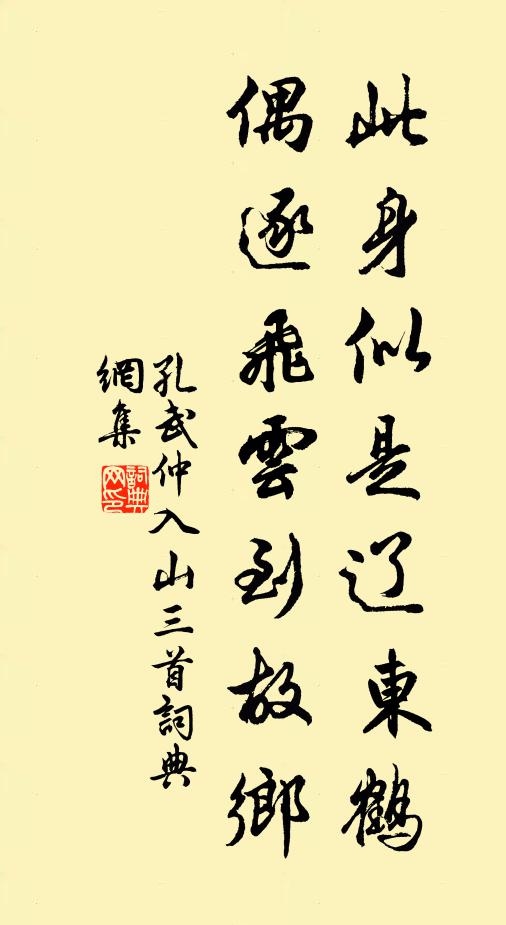 此身似是辽東鶴
偶逐飛雲到故鄉
孔武仲入山三首詞典
網集
詞典網印